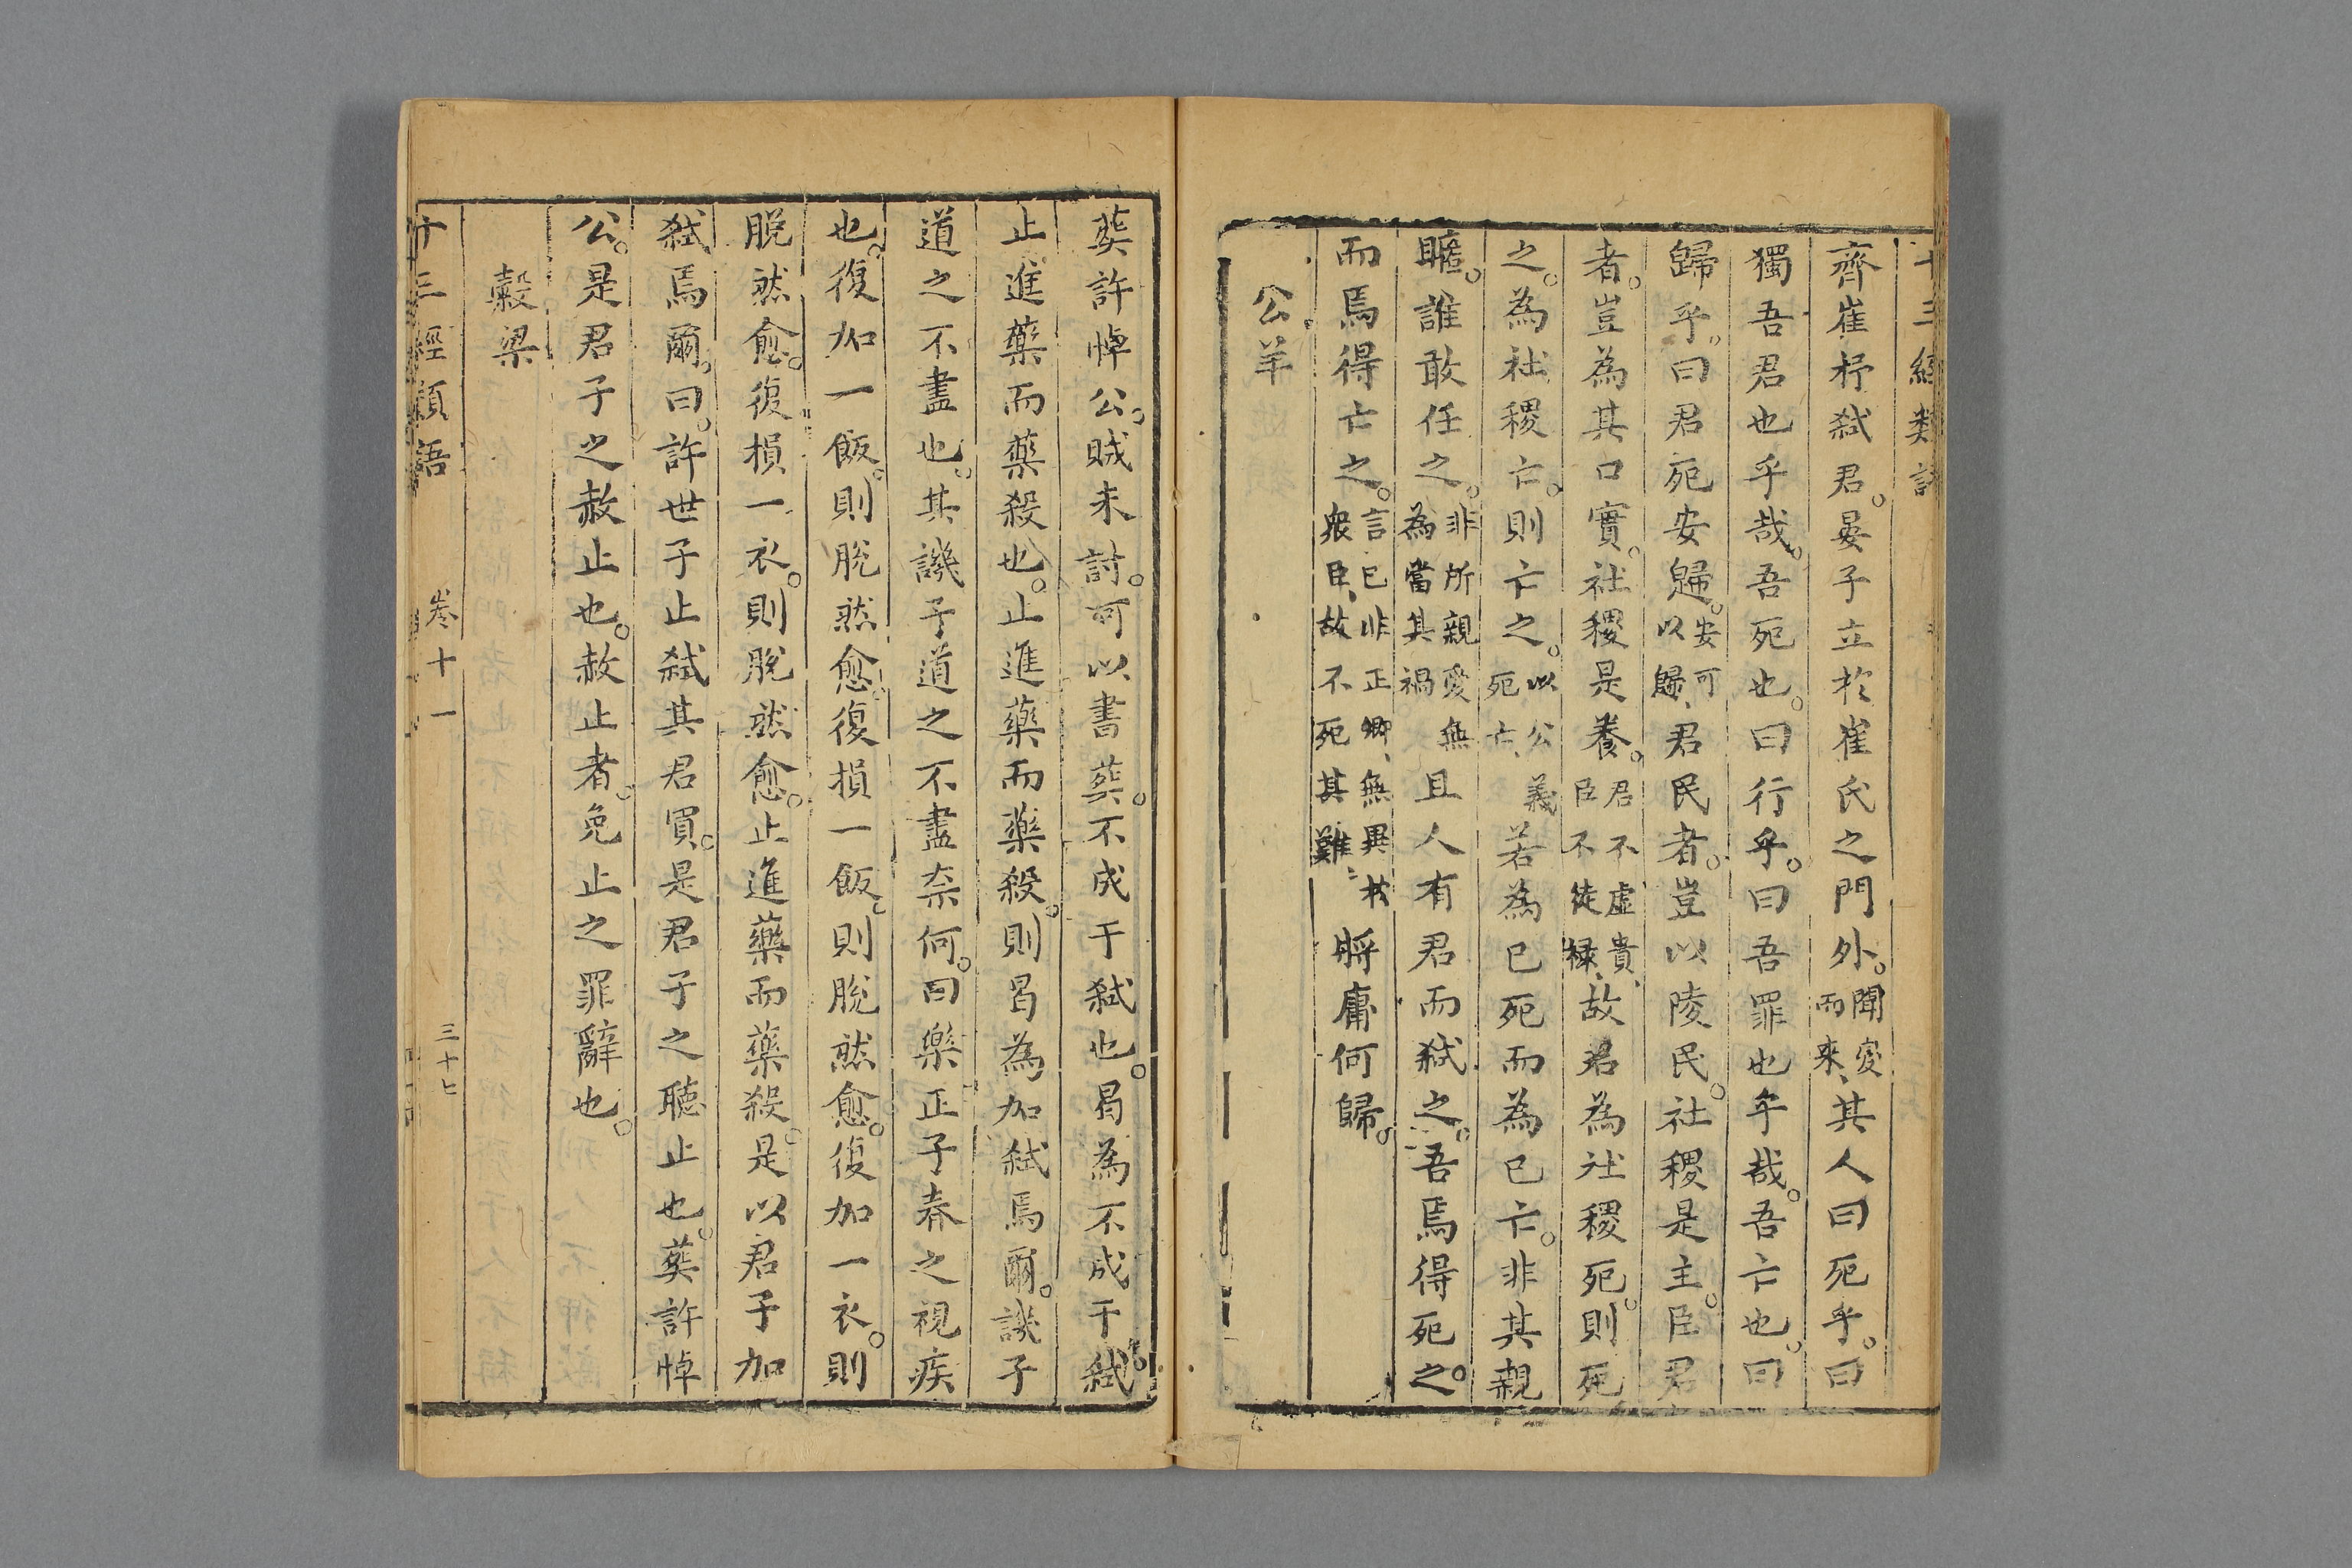 十三經類語
齊崔杼弑君。晏子立於崔氏之門外。聞變而來、其人曰死乎。曰
獨吾君也乎哉。吾死也。曰行乎。曰吾罪也乎哉。吾亡也。曰
歸乎。曰君死安歸。安可以歸、君民者。豈以陵民。社稷是主。臣君
者。豈為其口實。社稷是養。君不虛貴、臣不徒祿、故君為社稷死。則死
之。為社稷亡。則亡之。以公義死亡、若為已死而為已亡。非其親
暱。誰敢任之。非所親愛無為當其禍且人有君而弑之。吾焉得死之。
而焉得亡之。言已非正卿、無異於衆臣、故不死其難、將庸何歸。
公羊
葬許悼公。賊未討。何以書葬。不成于弑也。曷為不成于弑。
止進藥而藥殺也。止進藥而藥殺。則曷為加弑焉爾。譏子
道之不盡也。其譏子道之不盡奈何。曰樂正子春之視疾
也。復加一飯。則脫然愈。復損一飯。則脫然愈。復加一衣。則
脫然愈。復損一衣。則脫然愈。止進藥而藥殺。是以君子加
弑焉爾。曰。許世子止弑其君買。是君子之聽止也。葬許悼
公。是君子之赦止也。赦止者。免止之罪辭也。
穀梁
十三經類語 卷十一 三十七